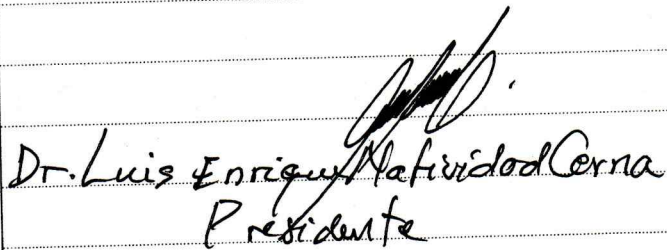 Dr. Luis Enrique Natividad Cerna
Presidente